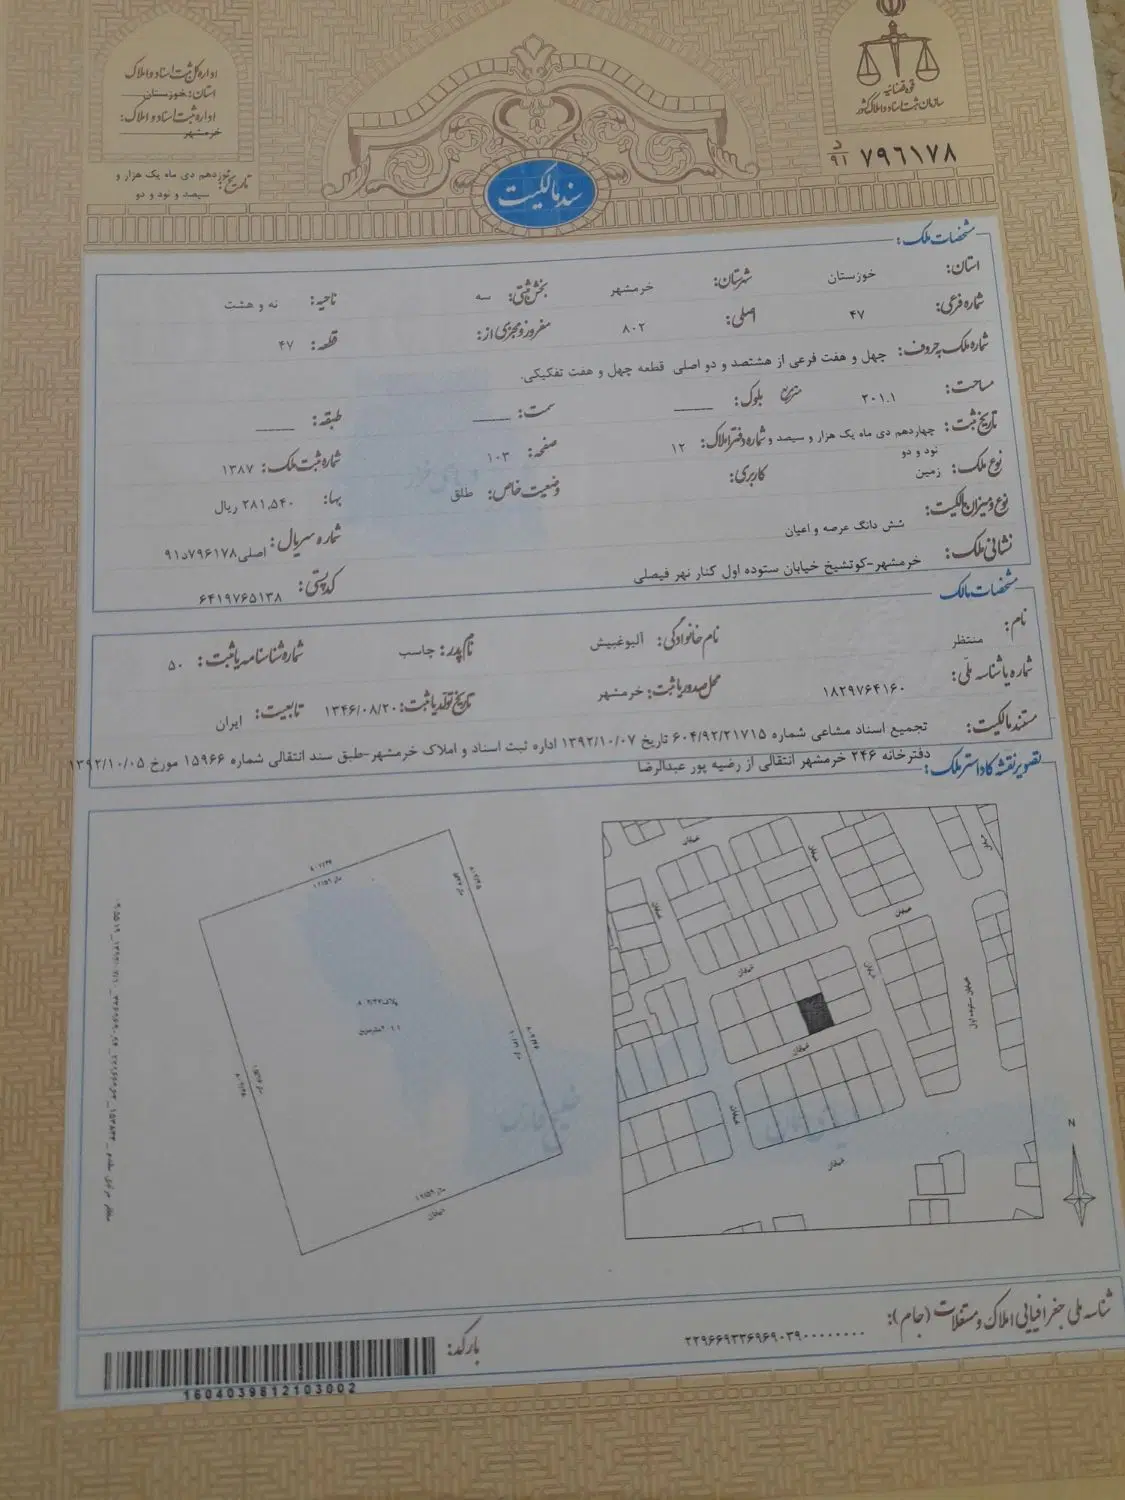 قوه قضائیه
سازمان ثبت اسناد و املاک کشور
۷۹۶۱۷۸ د ۹۱
اداره کل ثبت اسناد و املاک
استان: خوزستان
اداره ثبت اسناد و املاک:
خرمشهر
سیصد و نود و دو
سند مالکیت
مشخصات ملک:
استان: خوزستان شهرستان: خرمشهر بخش ثبتی: سه ناحیه: نه و هشت
شماره فرعی: ۴۷ اصلی: ۸۰۲ مفروز و مجزی از: قطعه: ۴۷
شماره ملک به حروف: چهل و هفت فرعی از هشتصد و دو اصلی قطعه چهل و هفت تفکیکی.
مساحت: ۲۰۱.۱ مترمربع بلوک: سمت: طبقه:
تاریخ ثبت: چهاردهم دی ماه یک هزار و سیصد و نود و دو شماره دفتر املاک: ۱۲ صفحه: ۱۰۳ شماره ثبت ملک: ۱۳۸۷
نوع ملک: زمین کاربری: وضعیت خاص: طلق بها: ۲۸۱,۵۴۰ ریال
نوع و میزان مالکیت: شش دانگ عرصه و اعیان شماره سریال: اصلی ۷۹۶۱۷۸د۹۱
نشانی ملک: خرمشهر-کوتشیخ خیابان ستوده اول کنار نهر فیصلی کد پستی: ۶۴۱۹۷۶۵۱۳۸
مشخصات مالک
نام: منتظر نام خانوادگی: آلبوغبیش نام پدر: جاسب شماره شناسنامه یا ثبت: ۵۰
شماره یا شناسه ملی: ۱۸۲۹۷۶۴۱۶۰ محل صدور یا ثبت: خرمشهر تاریخ تولد یا ثبت: ۱۳۴۶/۰۸/۲۰ تابعیت: ایران
مستند مالکیت: تجمیع اسناد مشاعی شماره ۶۰۴/۹۲/۲۱۷۱۵ تاریخ ۱۳۹۲/۱۰/۰۷ اداره ثبت اسناد و املاک خرمشهر-طبق سند انتقالی شماره ۱۵۹۶۶ مورخ ۱۳۹۲/۱۰/۰۵
دفترخانه ۲۴۶ خرمشهر انتقالی از رضیه پور عبدالرضا
تصویر نقشه کاداستر ملک:
خیابان
خیابان
خیابان
خیابان
خیابان
خیابان
خیابان ستوده اول
خیابان
خیابان
خیابان
N
خیابان
شناسه ملی جغرافیایی املاک و مستغلات (جام): ۲۲۹۶۶۹۳۳۶۹۶۹۰۳۹۰۰۰۰۰۰۰۰
بارکد:
1604039812103002